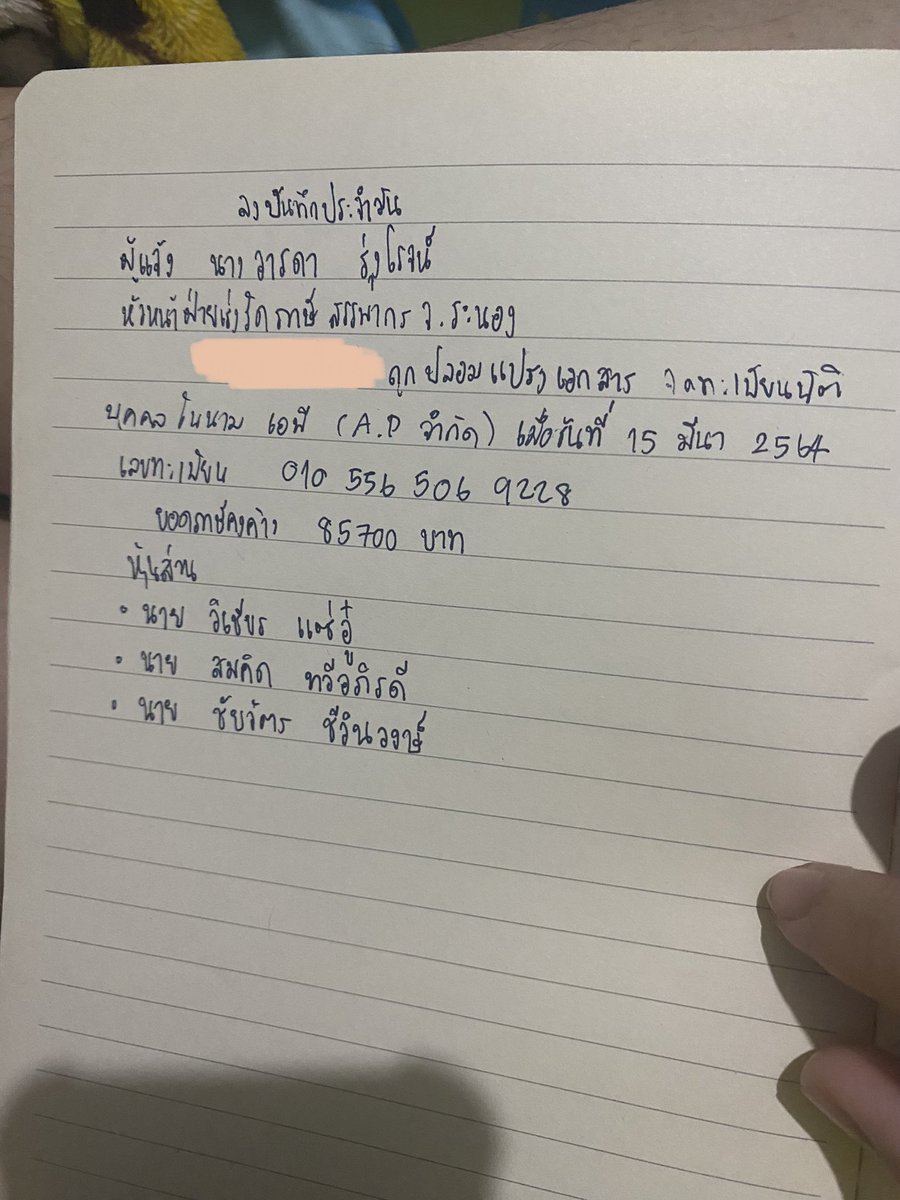 ลงบันทึกประจำวัน
ผู้แจ้ง นางวารดา รุ่งโรจน์
หัวหน้าฝ่ายเร่งรัดภาษี สรรพากร จ.ระนอง
ถูกปลอมแปรงเอกสาร จดทะเบียนนิติ
บุคคลในนาม เอพี (A.P จำกัด) เมื่อวันที่ 15 มีนา 2564
เลขทะเบียน 010 556 506 9228
ยอดภาษีคงค้าง 85700 บาท
หุ้นส่วน
• นาย วิเชียร แซ่อู๋
• นาย สมคิด ทวีอภิรดี
• นาย ชัยวัตร ชีวินวงษ์